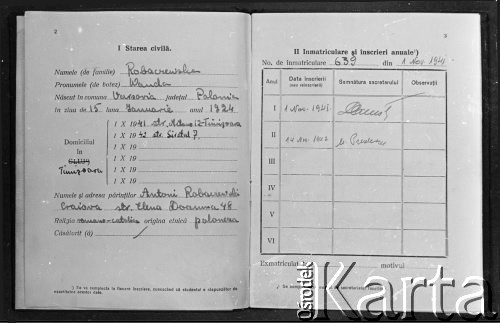 2
I Starea civilă.
Numele (de familie) Robaczewska
Pronumele (de botez) Wanda
Născut în comuna Varsovia județul Polonia
în ziua de 15 luna Ianuarie anul 1924
1 X 1941 str. 12 Timișoara
1 X 1942 str. Siretul 7
Domiciliul
în
CLUJ
Timișoara
1 X 19
1 X 19
1 X 19
1 X 19
Numele și adresa părinților Antoni Robaczewski
Craiova str. Elena Doamna 48.
Religia romano-catolica origina etnică poloneza
Căsătorit (ă)
¹) Se va completa la fiecare înscriere, cunoscând că studentul e răspunzător de
exactitatea acestor date.
3
II Inmatriculare și inscrieri anuale¹)
No. de inmatriculare 639 din 1 Nov. 1941
Anul
Data inscrierii
(sau reinscrierii)
Semnătura secretarului
Observații
I 1 Nov. 1941
II 14 Nov. 1942
III
IV
V
VI
Exmatriculat motivul
ośrodek
Karta